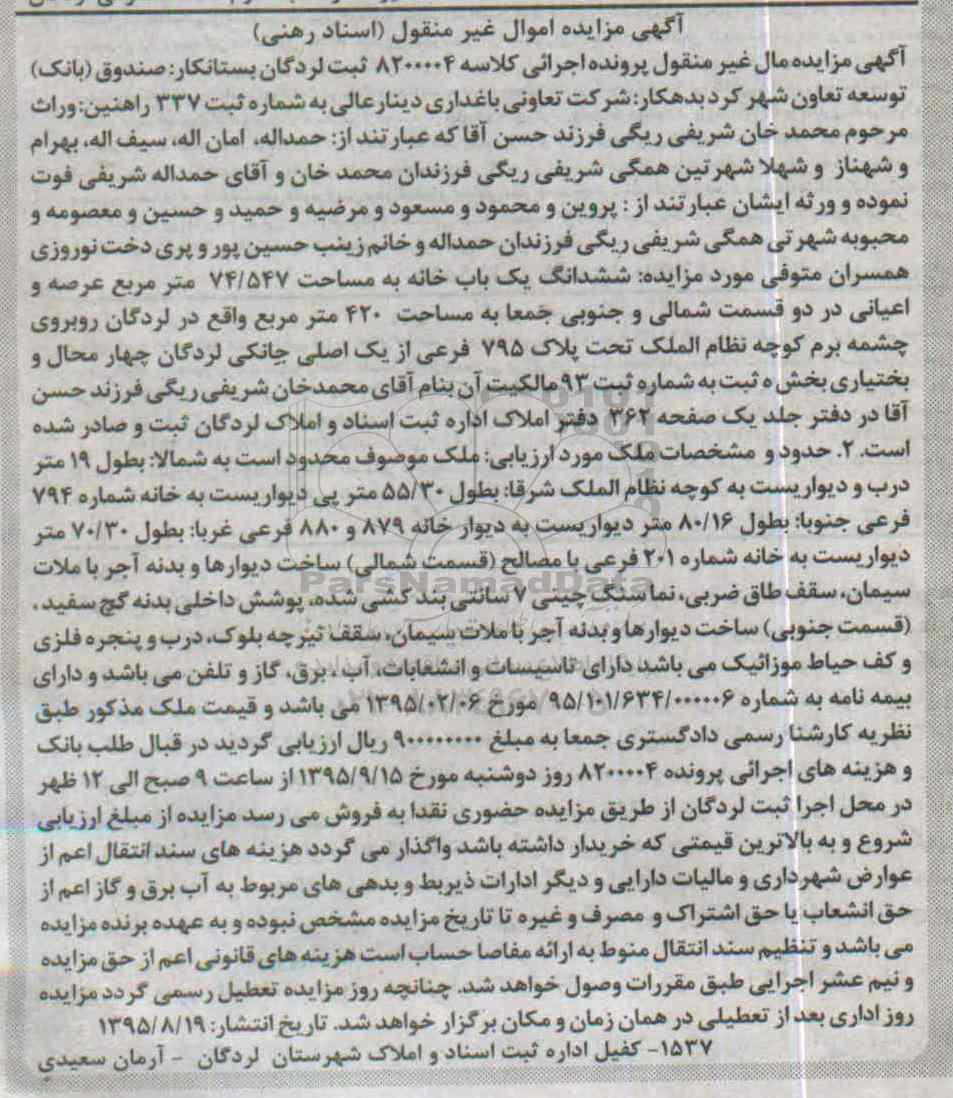 آگهی مزایده اموال غیر منقول (اسناد رهنی)
آگهی مزایده مال غیر منقول پرونده اجرائی کلاسه ۸۲۰۰۰۰۴ ثبت لردگان بستانکار: صندوق (بانک)
توسعه تعاون شهر کرد بدهکار: شرکت تعاونی باغداری دینارعالی به شماره ثبت ۳۳۷ راهنین: وراث
مرحوم محمد خان شریفی ریگی فرزند حسن آقا که عبارتند از: حمداله، امان اله، سیف اله، بهرام
و شهناز و شهلا شهرتین همگی شریفی ریگی فرزندان محمد خان و آقای حمداله شریفی فوت
نموده و ورثه ایشان عبارتند از : پروین و محمود و مسعود و مرضیه و حمید و حسین و معصومه و
محبوبه شهرتی همگی شریفی ریگی فرزندان حمداله و خانم زینب حسین پور و پری دخت نوروزی
همسران متوفی مورد مزایده: ششدانگ یک باب خانه به مساحت ۷۴/۵۴۷ متر مربع عرصه و
اعیانی در دو قسمت شمالی و جنوبی جمعا به مساحت ۴۲۰ متر مربع واقع در لردگان روبروی
چشمه برم کوچه نظام الملک تحت پلاک ۷۹۵ فرعی از یک اصلی جانکی لردگان چهار محال و
بختیاری بخش ۵ ثبت به شماره ثبت ۹۳ مالکیت آن بنام آقای محمدخان شریفی ریگی فرزند حسن
آقا در دفتر جلد یک صفحه ۳۶۲ دفتر املاک اداره ثبت اسناد و املاک لردگان ثبت و صادر شده
است. ۲. حدود و مشخصات ملک مورد ارزیابی: ملک موصوف محدود است به شمالا: بطول ۱۹ متر
درب و دیواریست به کوچه نظام الملک شرقا: بطول ۵۵/۳۰ متر پی دیواریست به خانه شماره ۷۹۴
فرعی جنوبا: بطول ۸۰/۱۶ متر دیواریست به دیوار خانه ۸۷۹ و ۸۸۰ فرعی غربا: بطول ۷۰/۳۰ متر
دیواریست به خانه شماره ۲۰۱ فرعی با مصالح (قسمت شمالی) ساخت دیوارها و بدنه آجر با ملات
سیمان، سقف طاق ضربی، نما سنگ چینی ۷ سانتی بند کشی شده، پوشش داخلی بدنه گچ سفید،
(قسمت جنوبی) ساخت دیوارها و بدنه آجر با ملات سیمان، سقف تیرچه بلوک، درب و پنجره فلزی
و کف حیاط موزائیک می باشد دارای تاسیسات و انشعابات، آب ، برق، گاز و تلفن می باشد و دارای
بیمه نامه به شماره ۹۵/۱۰۱/۶۳۴/۰۰۰۰۰۶ مورخ ۱۳۹۵/۰۲/۰۶ می باشد و قیمت ملک مذکور طبق
نظریه کارشنا رسمی دادگستری جمعا به مبلغ ۹۰۰۰۰۰۰۰۰ ریال ارزیابی گردید در قبال طلب بانک
و هزینه های اجرائی پرونده ۸۲۰۰۰۰۴ روز دوشنبه مورخ ۱۳۹۵/۹/۱۵ از ساعت ۹ صبح الی ۱۲ ظهر
در محل اجرا ثبت لردگان از طریق مزایده حضوری نقدا به فروش می رسد مزایده از مبلغ ارزیابی
شروع و به بالاترین قیمتی که خریدار داشته باشد واگذار می گردد هزینه های سند انتقال اعم از
عوارض شهرداری و مالیات دارایی و دیگر ادارات ذیربط و بدهی های مربوط به آب برق و گاز اعم از
حق انشعاب یا حق اشتراک و مصرف و غیره تا تاریخ مزایده مشخص نبوده و به عهده برنده مزایده
می باشد و تنظیم سند انتقال منوط به ارائه مفاصا حساب است هزینه های قانونی اعم از حق مزایده
و نیم عشر اجرایی طبق مقررات وصول خواهد شد. چنانچه روز مزایده تعطیل رسمی گردد مزایده
روز اداری بعد از تعطیلی در همان زمان و مکان برگزار خواهد شد. تاریخ انتشار: ۱۳۹۵/۸/۱۹
۱۵۳۷- کفیل اداره ثبت اسناد و املاک شهرستان لردگان - آرمان سعیدی
ParsNamadData